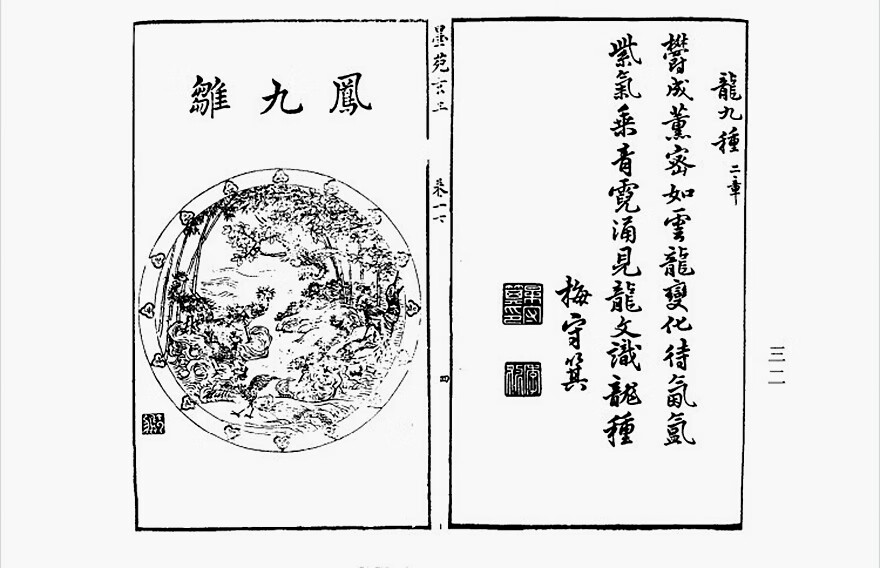 龍九種 二章
欝成薰密如雲龍變化待氤氳
紫氣乘青霓涌見龍文識龍種
梅守箕
三二
墨苑玄工 卷一下
四
鳳九雛